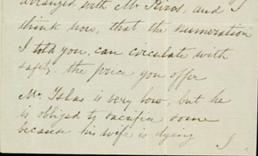 arranged with Mr. and I
think now, that the numeration
I told you, can circulate with
safety. the price you offer
Mr. Islas is very low, but he
is obliged to sacrifice some
because his wife is dying
I